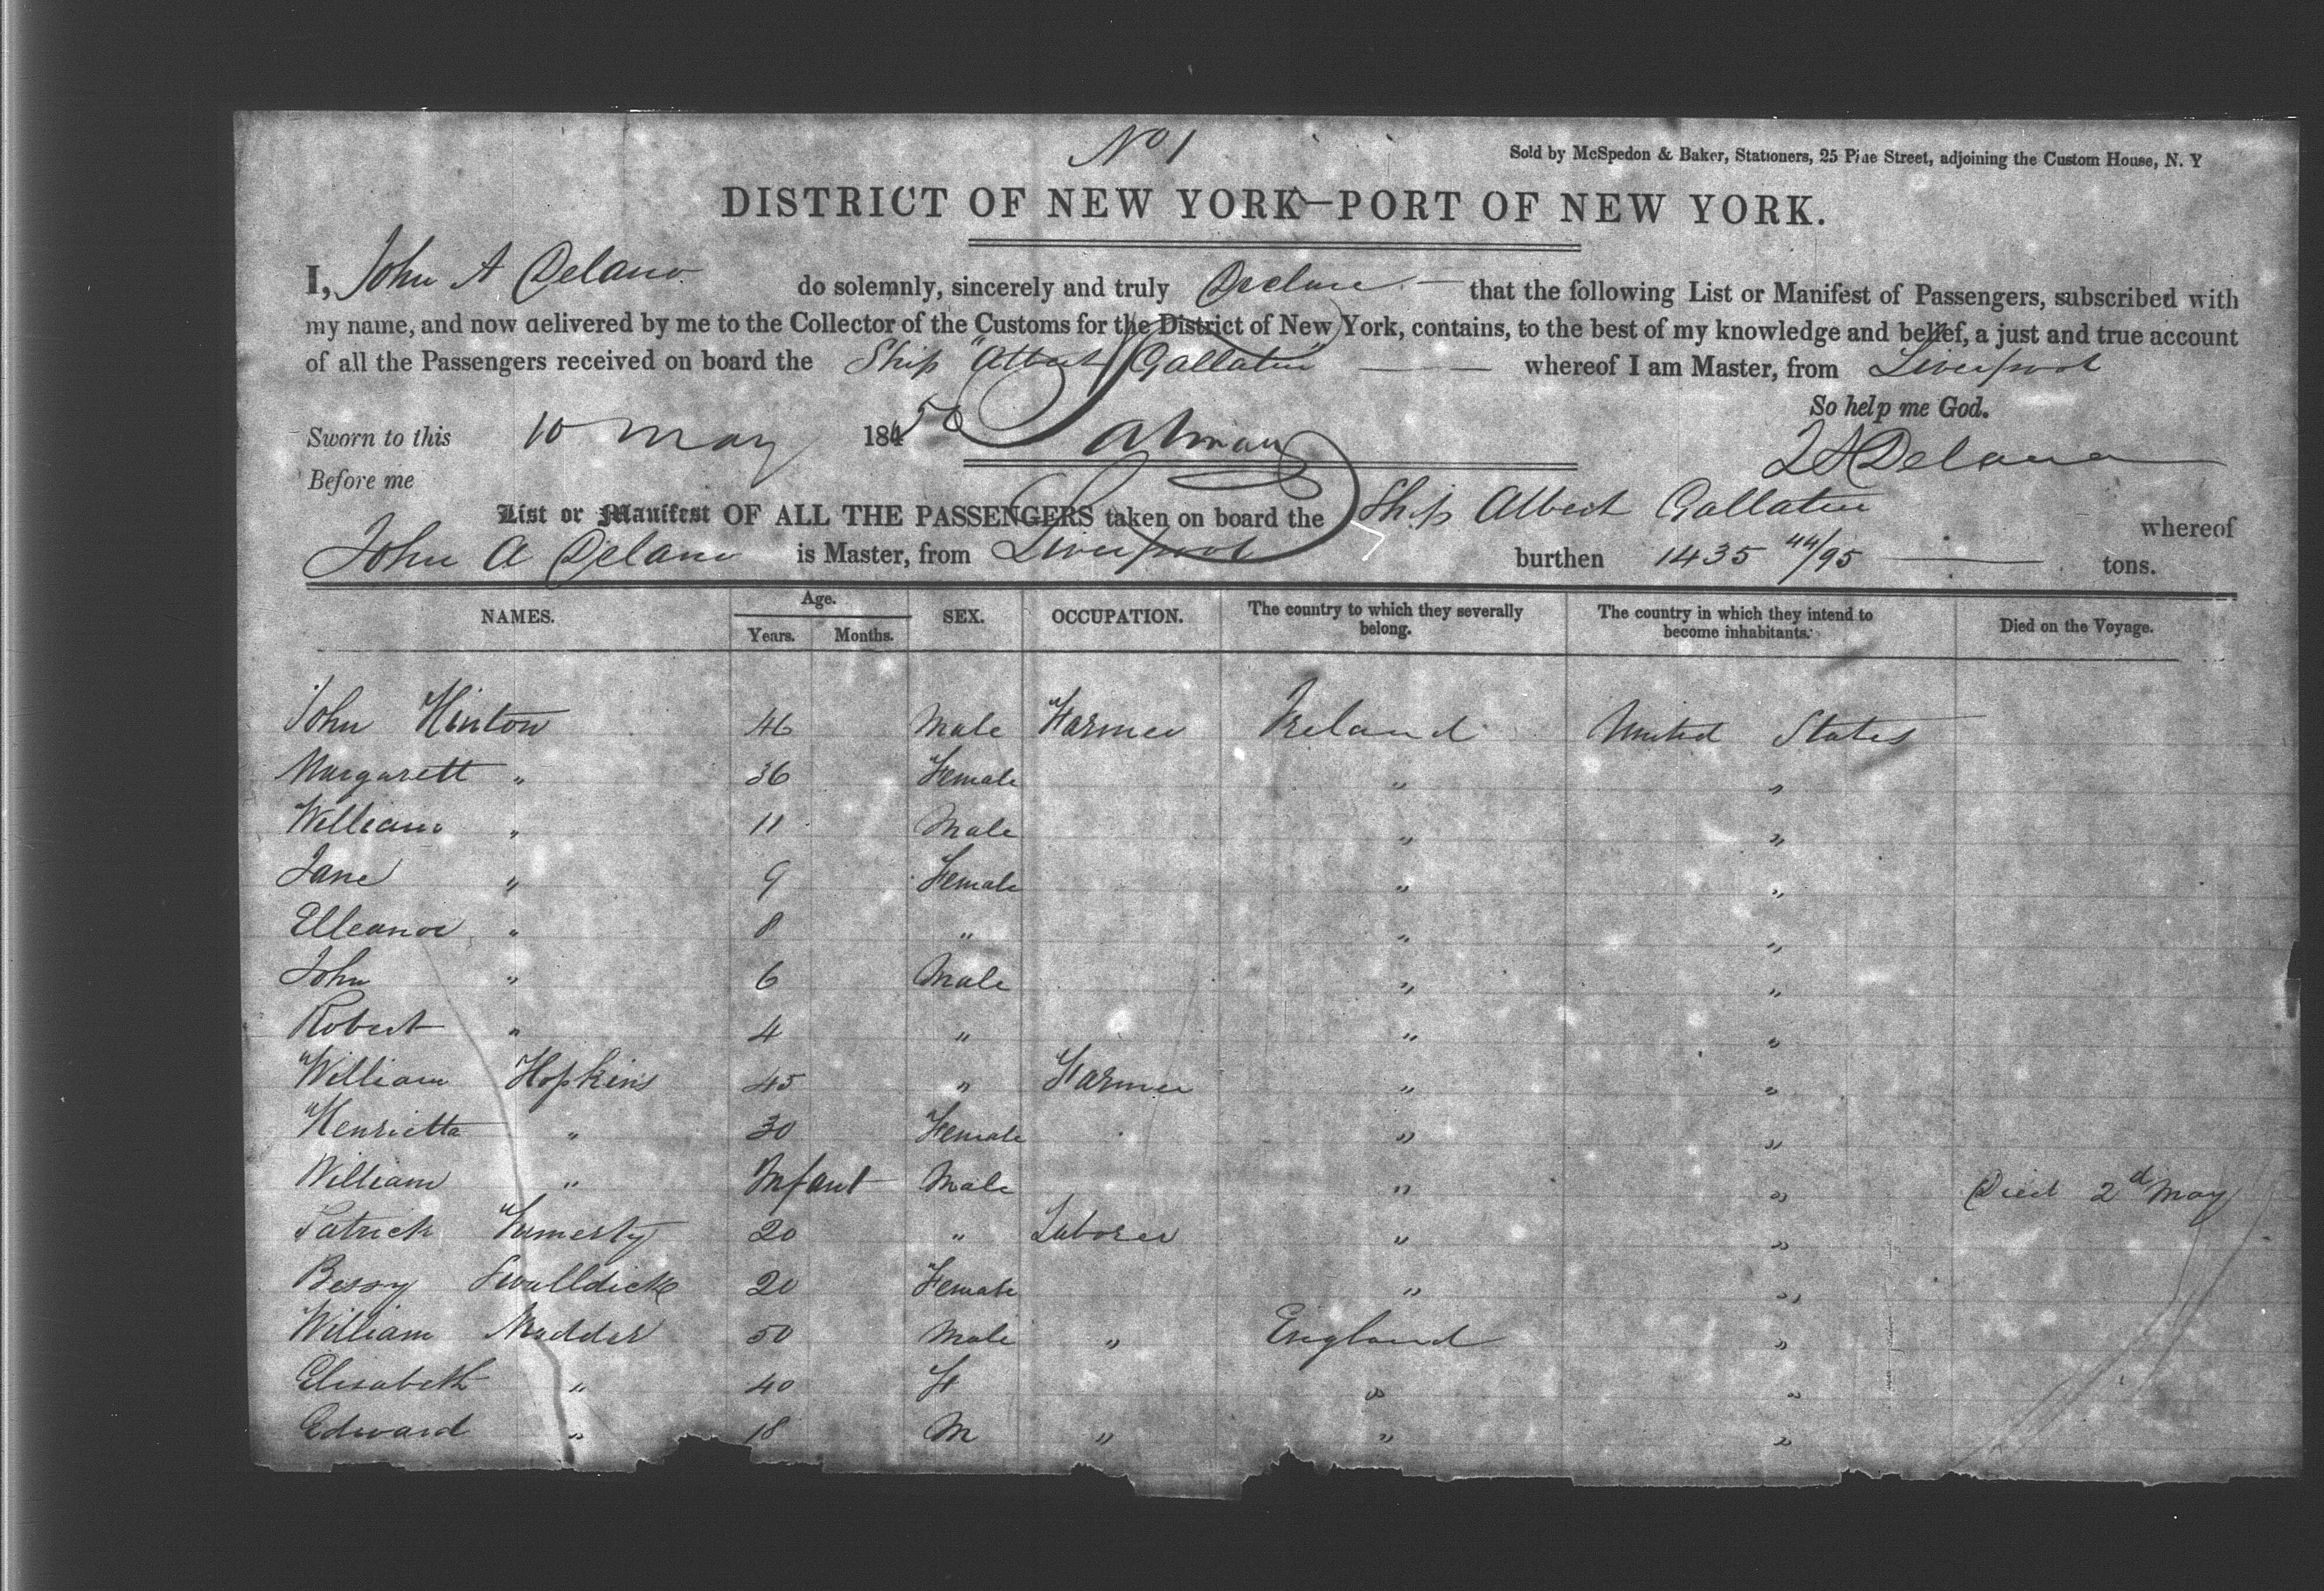 No 1
Sold by McSpedon & Baker, Stationers, 25 Pine Street, adjoining the Custom House, N. Y
DISTRICT OF NEW YORK—PORT OF NEW YORK.
I, John A Delano do solemnly, sincerely and truly Declare that the following List or Manifest of Passengers, subscribed with
my name, and now delivered by me to the Collector of the Customs for the District of New York, contains, to the best of my knowledge and belief, a just and true account
of all the Passengers received on board the Ship "Albert Gallatin" whereof I am Master, from Liverpool
So help me God.
Sworn to this 10 May 1850
J A Delano
Before me
List or Manifest OF ALL THE PASSENGERS taken on board the Ship Albert Gallatin whereof
John A Delano is Master, from Liverpool burthen 1435 44/95 tons.
NAMES. Age. Years. Months. SEX. OCCUPATION. The country to which they severally belong. The country in which they intend to become inhabitants. Died on the Voyage.
John Hinton 46 Male Farmer Ireland United States
Margarett " 36 Female " "
William " 11 Male " "
Jane " 9 Female " "
Elleanor " 8 " " "
John " 6 Male " "
Robert " 4 " " "
William Hopkins 45 " Farmer " "
Henrietta " 30 Female " "
William " Infant Male " " Died 2d May
Patrick 20 " Laborer " "
Bessy 20 Female " "
William Madder 50 Male " England "
Elisabeth " 40 F " "
Edward " 18 M " " "